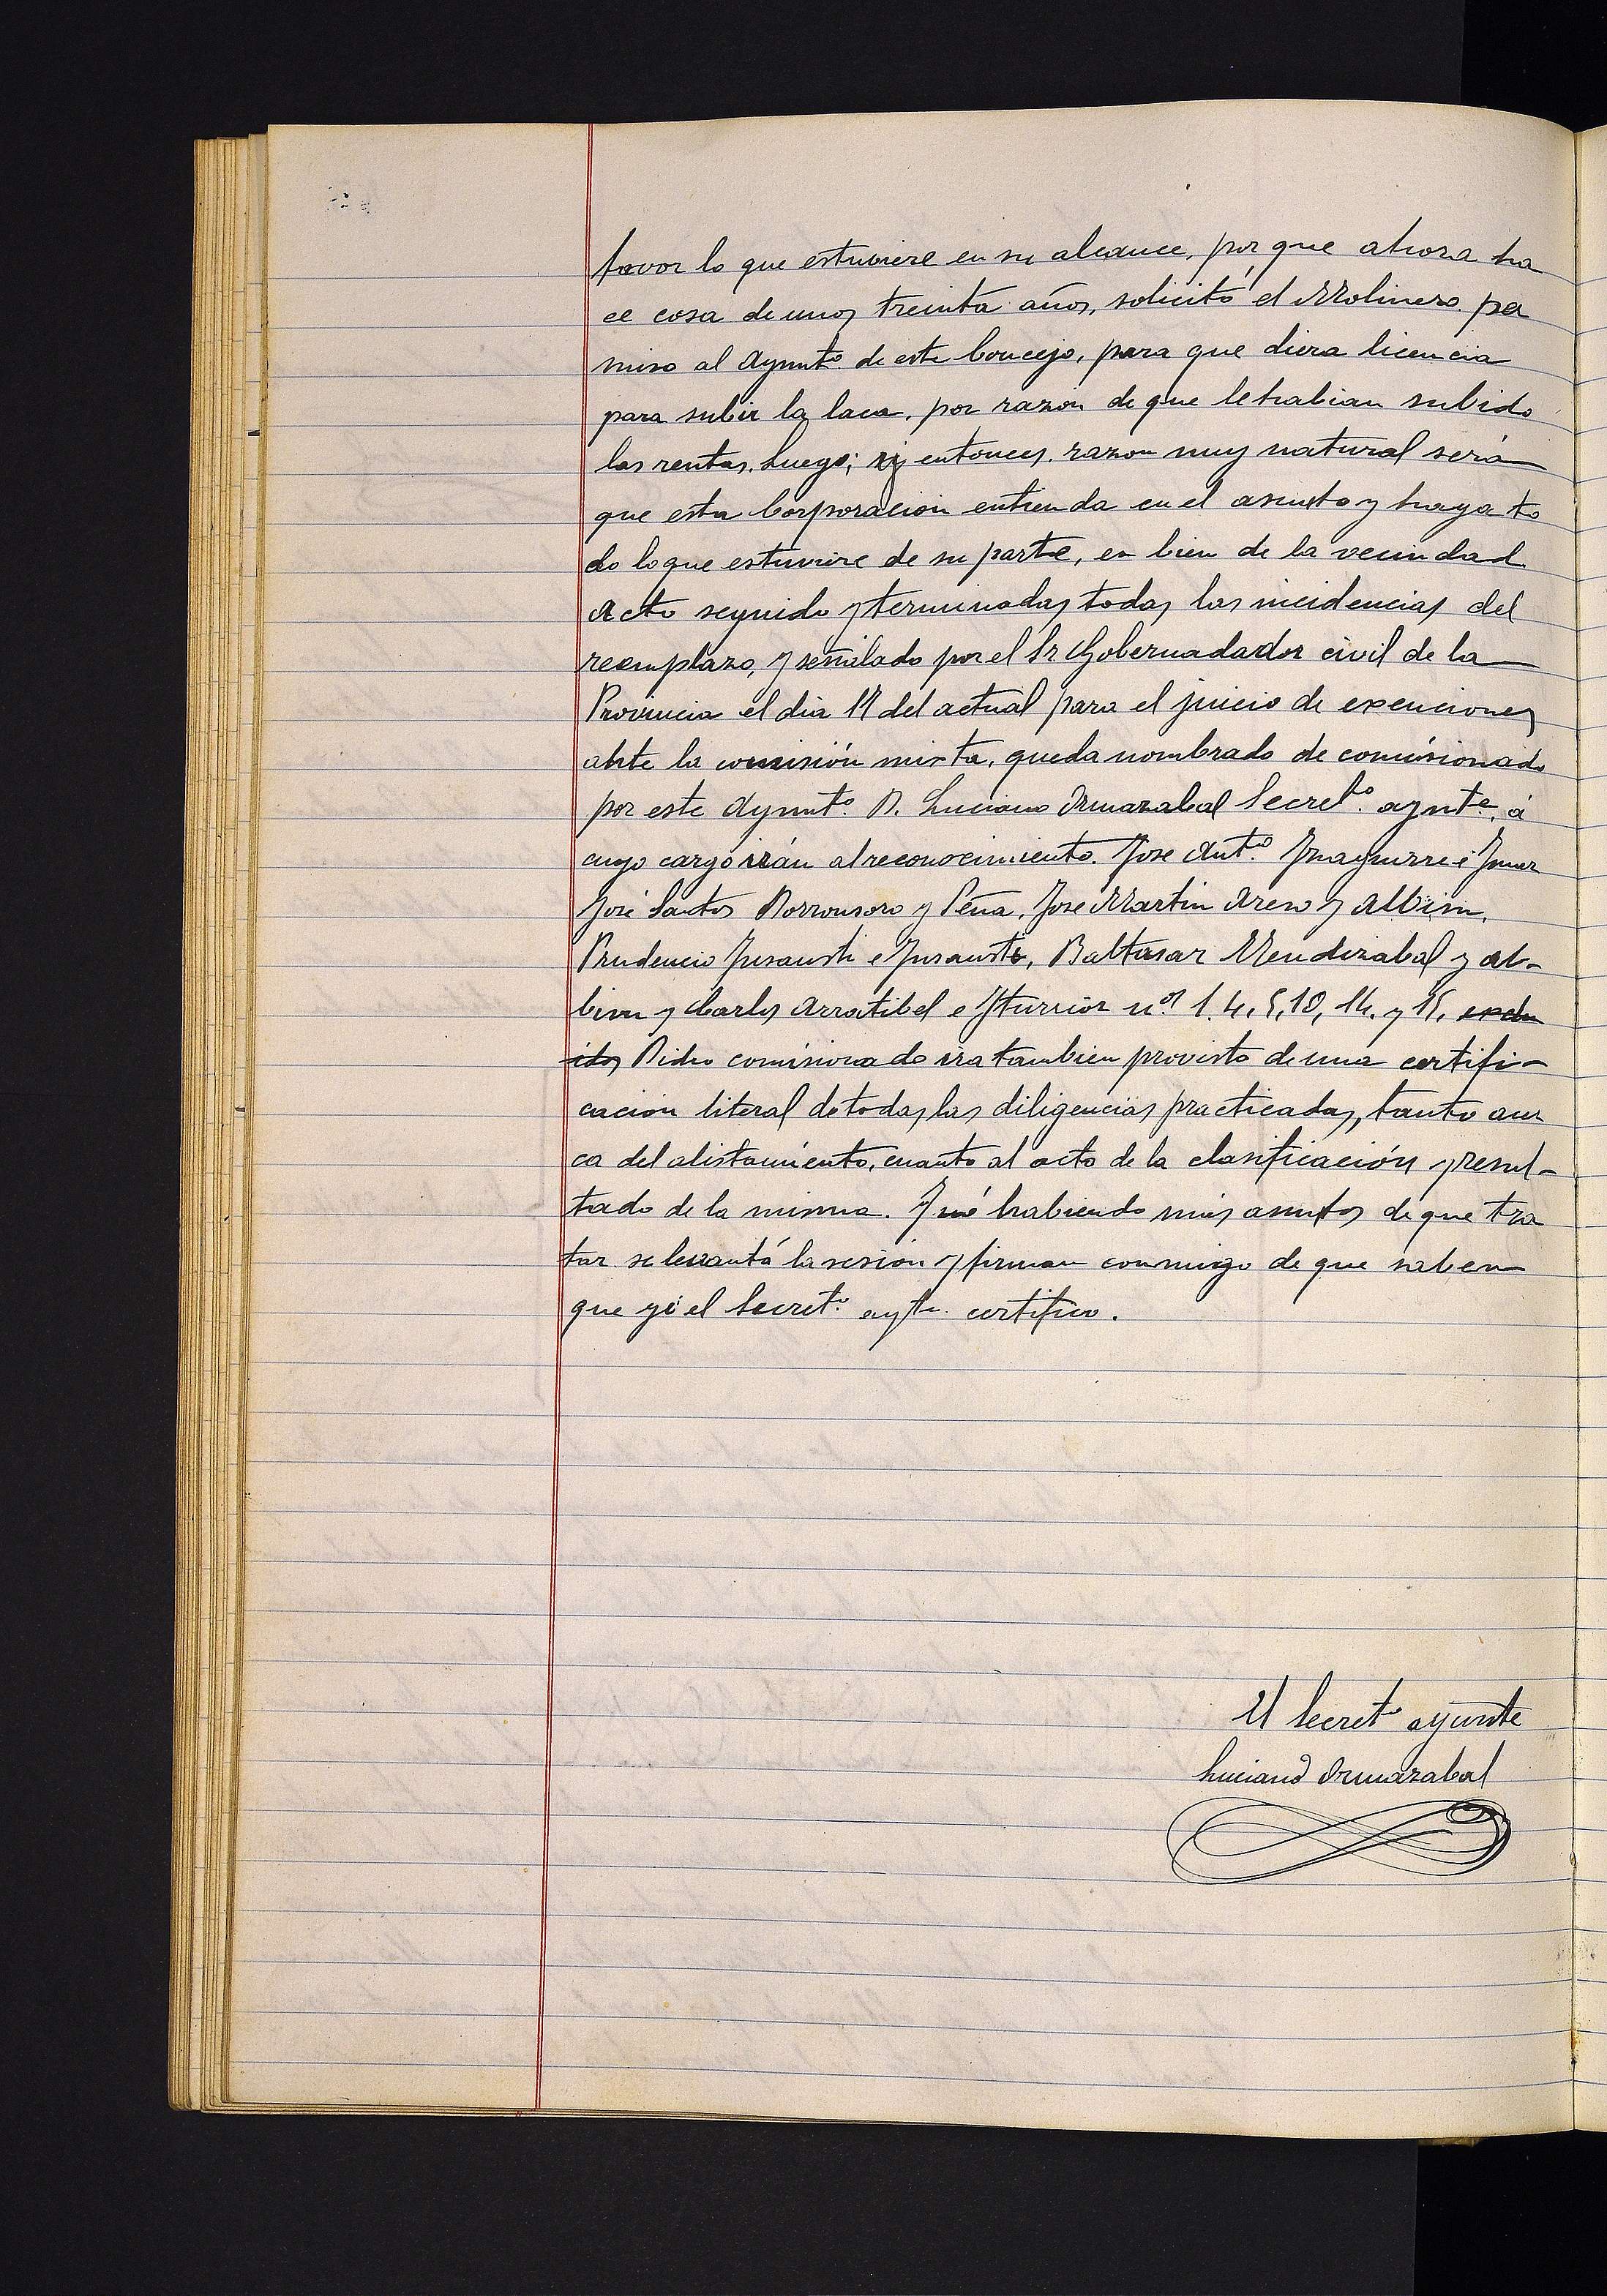 favor lo que estuviere en su alcance, por que ahora ha
ce cosa de unos treinta años, solicitó el Molinero per
miso al Ayunt.º de este Concejo, para que diera licencia
para subir la laca, por razon de que le habian subido
las rentas. Luego; si entonces, razon muy natural será
que esta Corporacion entienda en el asunto y haga to
do lo que estuviere de su parte, en bien de la vecindad
Acto seguido y terminadas todas las incidencias del
reemplazo, y señalado por el Sr Gobernadador civil de la
Provincia el dia 17 del actual para el juicio de exenciones
ante la comisión mixta, queda nombrado de comisionado
por este Ayunt.º D. Luciano Ormazabal Secret.º aynte. á
cuyo cargo irán al reconocimiento. Jose Ant.º
José Santos Dorronsoro y Peña, Jose Martin Areso y Albisu,
Prudencio Jusausti e Jusausti, Baltasar Mendizabal y Al-
bisu y Carlos Arratibel e Yturrioz n.os 1. 4, 5, 10, 14, y 15, exclu
idos Dicho comisionado ira tambien provisto de una certifi-
cacion literal de todas las diligencias practicadas, tanto acer
ca del alistamiento, cuanto al acto de la clasificación y resul-
tado de la misma. Y no habiendo más asuntos de que tra
tar se levantó la sesion y firman conmigo de que saben
que yó el Secret.º aynte. certifico.
El Secret.º ayunte
Luciano Ormazabal